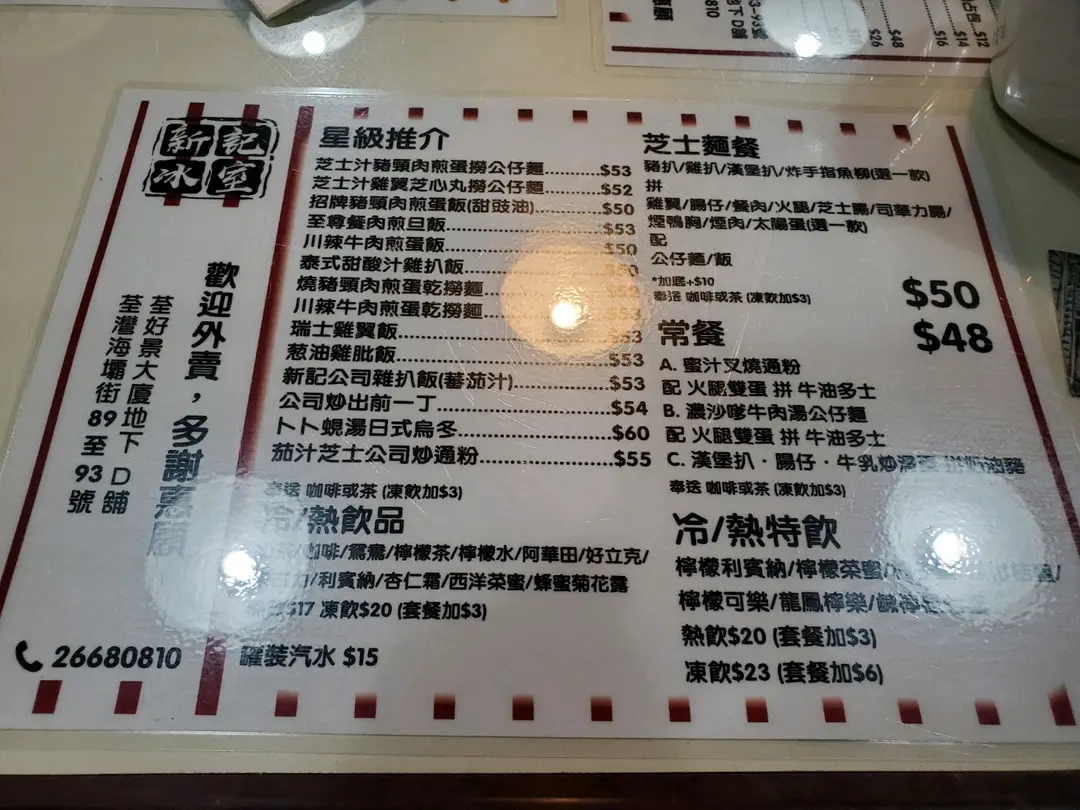 新記
冰室
歡迎外賣，多謝惠顧
荃好景大廈地下D舖
荃灣海壩街89至93號
26680810
星級推介
芝士汁豬頸肉煎蛋撈公仔麵..........$53
芝士汁雞翼芝心丸撈公仔麵..........$52
招牌豬頸肉煎蛋飯(甜豉油)..........$50
至尊餐肉煎旦飯..........$53
川辣牛肉煎蛋飯..........$50
泰式甜酸汁雞扒飯..........
燒豬頸肉煎蛋乾撈麵..........
川辣牛肉煎蛋乾撈麵..........
瑞士雞翼飯..........$53
葱油雞肶飯..........$53
新記公司雜扒飯(蕃茄汁)..........$53
公司炒出前一丁..........$54
卜卜蜆湯日式烏冬..........$60
茄汁芝士公司炒通粉..........$55
奉送 咖啡或茶 (凍飲加$3)
冷/熱飲品
/咖啡/鴛鴦/檸檬茶/檸檬水/阿華田/好立克/
/利賓納/杏仁霜/西洋菜蜜/蜂蜜菊花露
$17 凍飲$20 (套餐加$3)
罐裝汽水 $15
芝士麵餐
豬扒/雞扒/漢堡扒/炸手指魚柳(選一款)
拼
雞翼/腸仔/餐肉/火腿/芝士腸/司華力腸/
煙鴨胸/煙肉/太陽蛋(選一款)
配
公仔麵/飯
*加底+$10
奉送 咖啡或茶 (凍飲加$3)
$50
常餐
$48
A. 蜜汁叉燒通粉
配 火腿雙蛋 拼 牛油多士
B. 濃沙嗲牛肉湯公仔麵
配 火腿雙蛋 拼 牛油多士
C. 漢堡扒·腸仔·牛乳炒滑蛋 拼奶油豬
奉送 咖啡或茶 (凍飲加$3)
冷/熱特飲
檸檬利賓納/檸檬菜蜜/
檸檬可樂/龍鳳檸樂/鹹檸
熱飲$20 (套餐加$3)
凍飲$23 (套餐加$6)